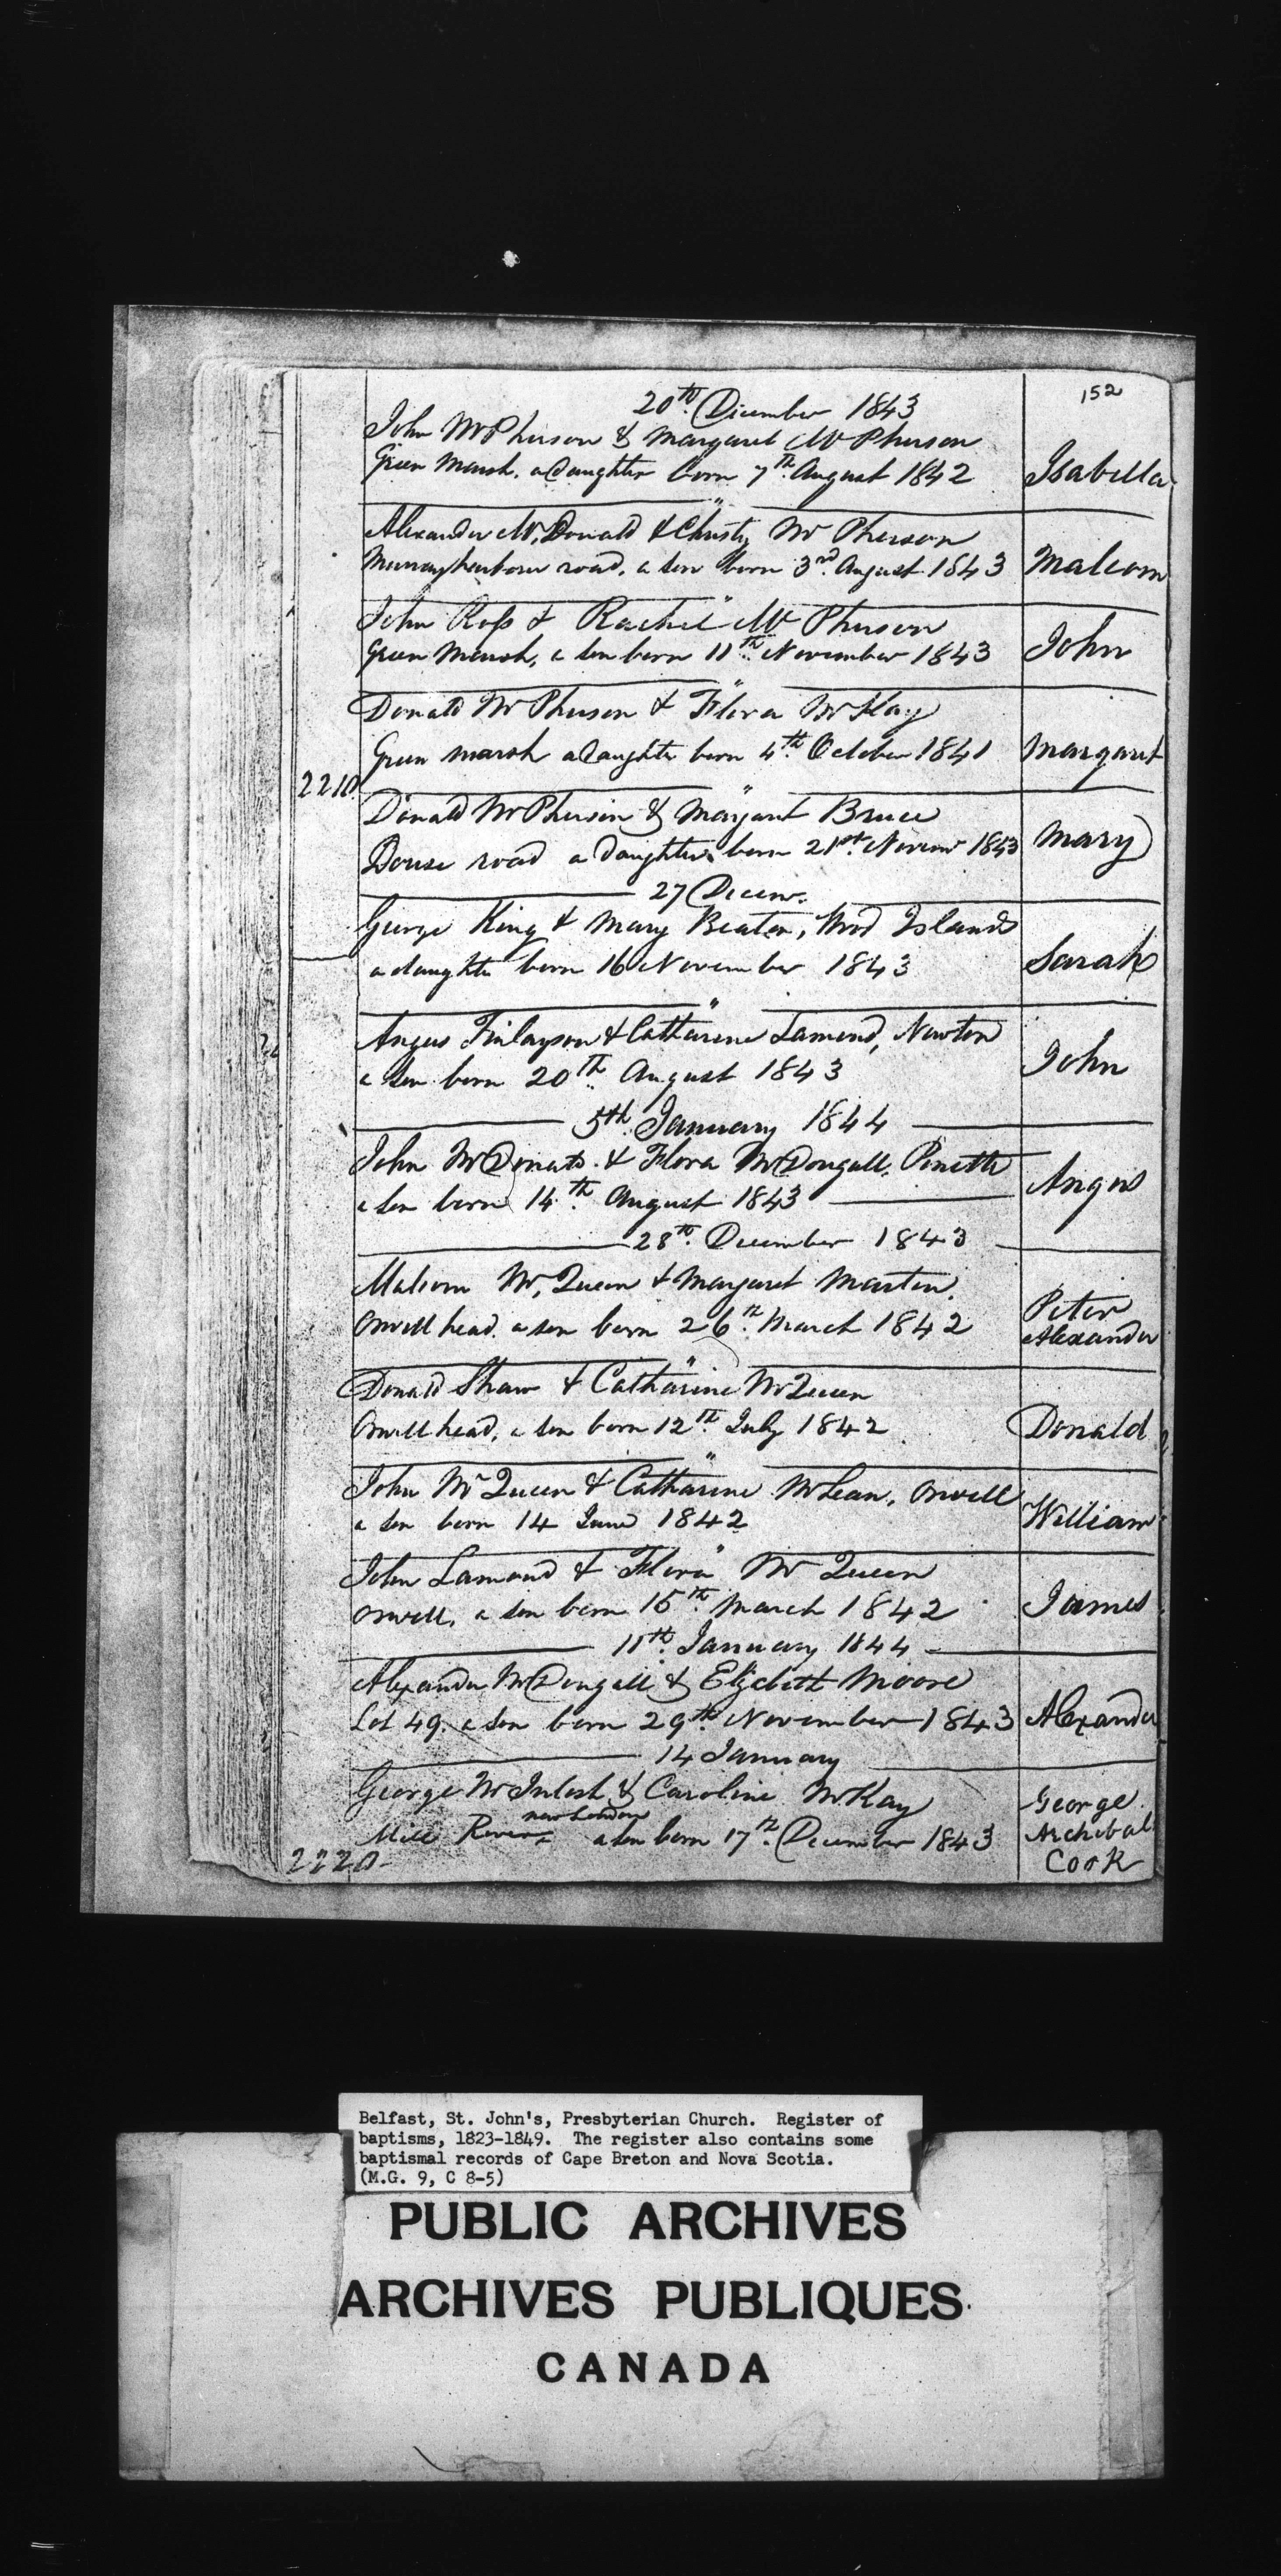 152
20th December 1843
John McPherson & Margaret McPherson
Green Marsh, a daughter born 7th August 1842 Isabella
"
Alexander McDonald & Christy McPherson
Murrayharbour road, a son born 3rd August 1843 Malcom
"
John Ross & Rachel McPherson
Green Marsh, a son born 11th November 1843 John
"
Donald McPherson & Flora McKay
Green marsh a daughter born 4th October 1841 Margaret
2210
"
Donald McPherson & Margaret Bruce
Douse road a daughter born 21st Novemr 1843 Mary
27 Decemr.
George King & Mary Beaton, Wood Islands
a daughter born 16 November 1843 Sarah
"
Angus Finlayson & Catharine Lamond, Newton
a son born 20th August 1843 John
5th January 1844
John McDonald & Flora McDougall, Pinette
a son born 14th August 1843 Angus
28th December 1843
Malcom McQueen & Margaret Martin.
Orwell head. a son born 26th March 1842 Peter Alexander
"
Donald Shaw & Catharine McQueen
Orwell head, a son born 12th July 1842 Donald
"
John McQueen & Catharine McLean, Orwell
a son born 14 June 1842 William
"
John Lamond & Flora McQueen
Orwell, a son born 15th March 1842 James
11th January 1844
Alexander McDougall & Elizabeth Moore
Lot 49, a son born 29th November 1843 Alexander
14 January
George McIntosh & Caroline McKay
new London
Mill River a son born 17th December 1843 George Archibal Cook
2220
Belfast, St. John's, Presbyterian Church. Register of
baptisms, 1823-1849. The register also contains some
baptismal records of Cape Breton and Nova Scotia.
(M.G. 9, C 8-5)
PUBLIC ARCHIVES
ARCHIVES PUBLIQUES
CANADA